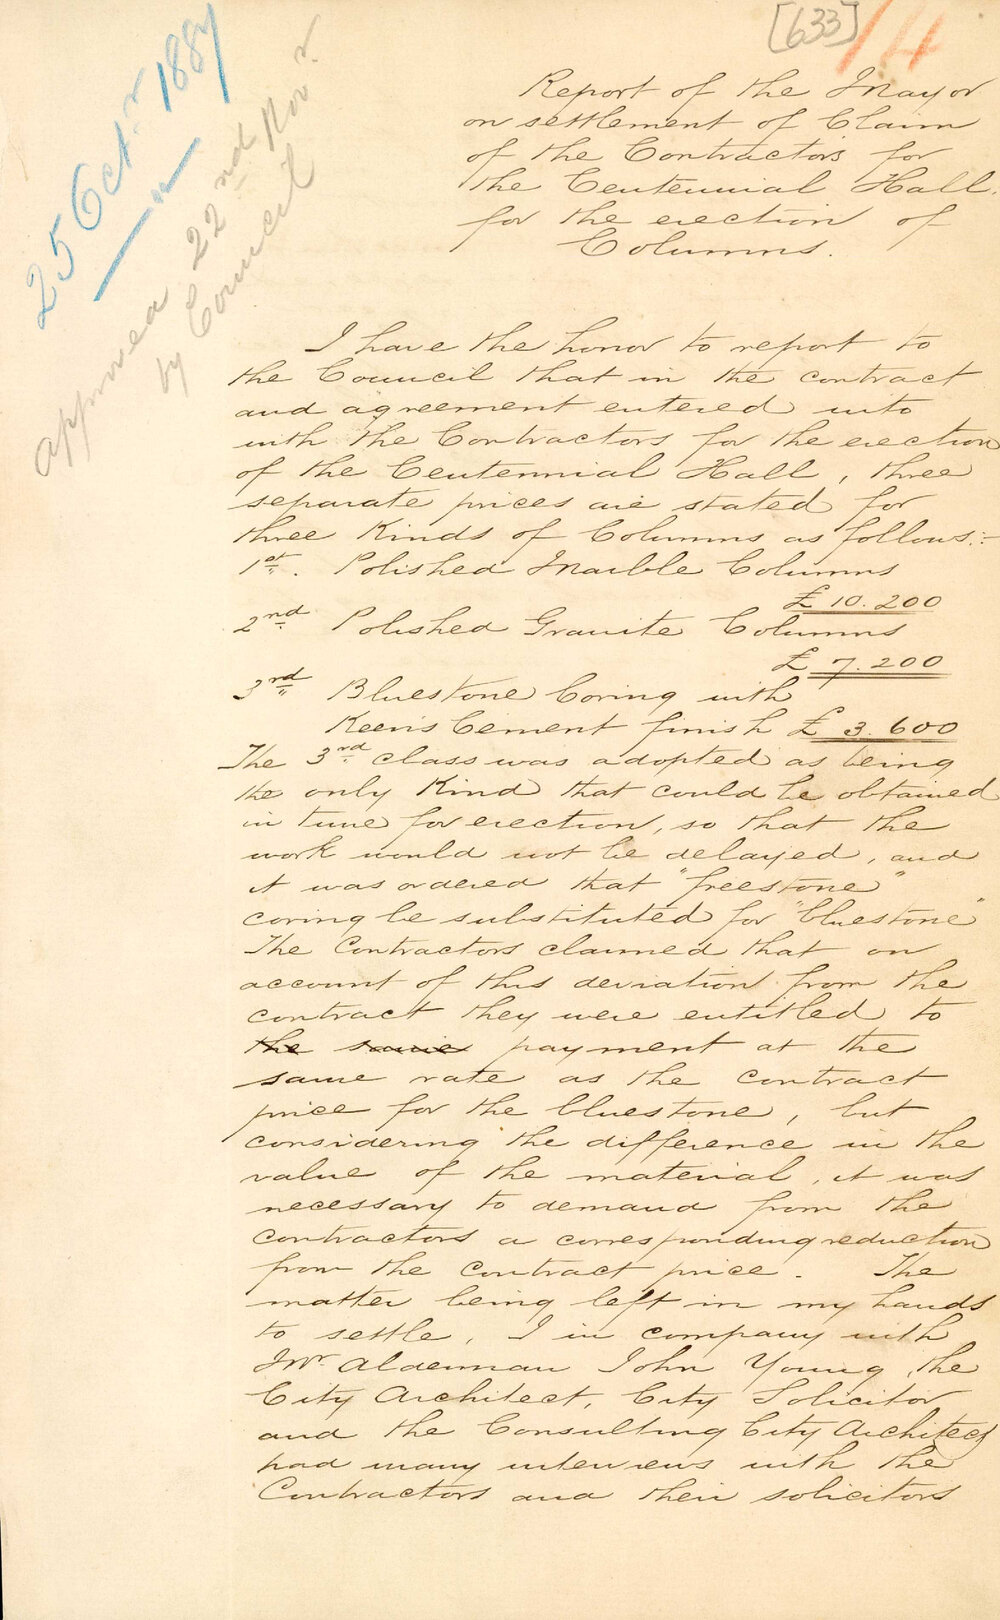 [633] /14
25 Octr. 1887
approved 22nd Novr.
by Council
Report of the Mayor
on settlement of Claim
of the Contractors for
the Centennial Hall.
for the erection of
Columns.
I have the honor to report to
the Council that in the contract
and agreement entered into
with the Contractors for the erection
of the Centennial Hall, three
separate prices are stated for
three Kinds of Columns as follows:-
1st. Polished Marble Columns
£10.200
2nd Polished Granite Columns
£7.200
3rd Bluestone Coring with
Keen's Cement finish £3.600
The 3rd class was adopted as being
the only Kind that could be obtained
in time for erection, so that the
work would not be delayed, and
it was ordered that "freestone"
coring be substituted for "bluestone"
The Contractors claimed that on
account of this deviation from the
contract they were entitled to
the same payment at the
same rate as the contract
price for the bluestone, but
considering the difference in the
value of the material, it was
necessary to demand from the
contractors a corresponding reduction
from the contract price. The
matter being left in my hands
to settle, I in company with
Mr. Alderman John Young, the
City Architect, City Solicitor
and the Consulting City Architect
had many interviews with the
Contractors and their solicitors